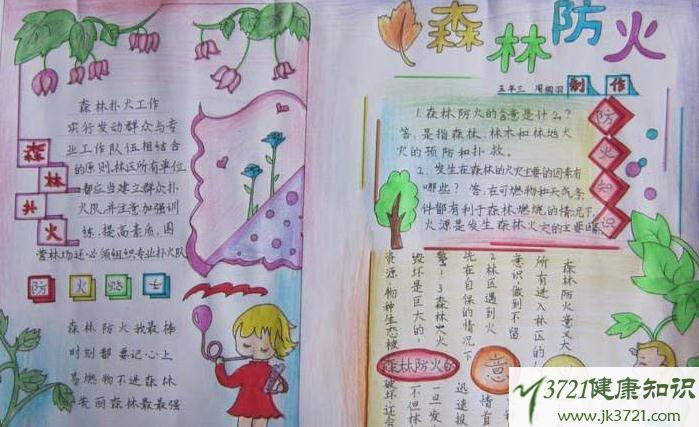 森林防火
五年三
制作
森林扑火
森林扑火工作
实行发动群众与专
业工作队伍相结合
的原则.林区所有单位
都应当建立群众扑
火队并注意加强训
练.提高素质，国
营林场还必须组织专业扑火队
防火
森林防火我最棒
时刻都要记心上
易燃物不进森林
美丽森林最最强
防火知识
1.森林防火的含意是什么？
答，是指森林、林木和林地火
灾的预防和扑救。
2、发生在森林的火灾主要的因素有
哪些？答，在可燃物和天气条
件都有利于森林燃烧的情况下，
火源是发生森林火灾的主要
森林防火意义大
所有进入林区的
意识做到不留
2.林区遇到火
先在自保的情况下
警！3.森林火灾
毁坏是巨大的！
资源.物种生态被破坏还会
不但林
一旦发
迅速报
森林防火的
意
3721健康知识
www.jk3721.com